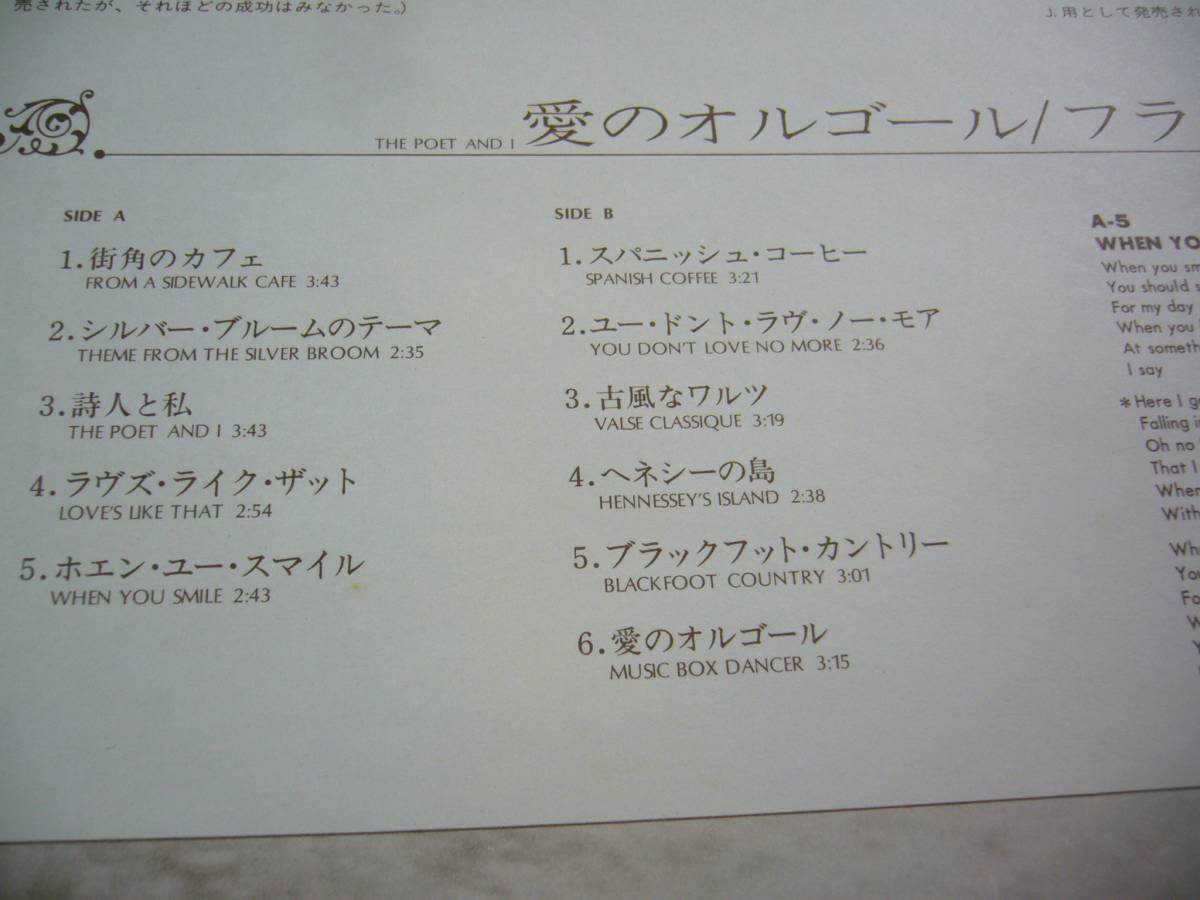 売されたが、それほどの成功はみなかった。)
J.用として発売され
THE POET AND I 愛のオルゴール/フラ
SIDE A
1.街角のカフェ
FROM A SIDEWALK CAFE 3:43
2.シルバー・ブルームのテーマ
THEME FROM THE SILVER BROOM 2:35
3.詩人と私
THE POET AND I 3:43
4.ラヴズ・ライク・ザット
LOVE'S LIKE THAT 2:54
5.ホエン・ユー・スマイル
WHEN YOU SMILE 2:43
SIDE B
1.スパニッシュ・コーヒー
SPANISH COFFEE 3:21
2.ユー・ドント・ラヴ・ノー・モア
YOU DON'T LOVE NO MORE 2:36
3.古風なワルツ
VALSE CLASSIQUE 3:19
4.ヘネシーの島
HENNESSEY'S ISLAND 2:38
5.ブラックフット・カントリー
BLACKFOOT COUNTRY 3:01
6.愛のオルゴール
MUSIC BOX DANCER 3:15
A-5
WHEN YO
When you sm
You should s
For my day
When you
At someth
I say
*Here I g
Falling i
Oh no
That I
When
With
Wh
You
Fo
W